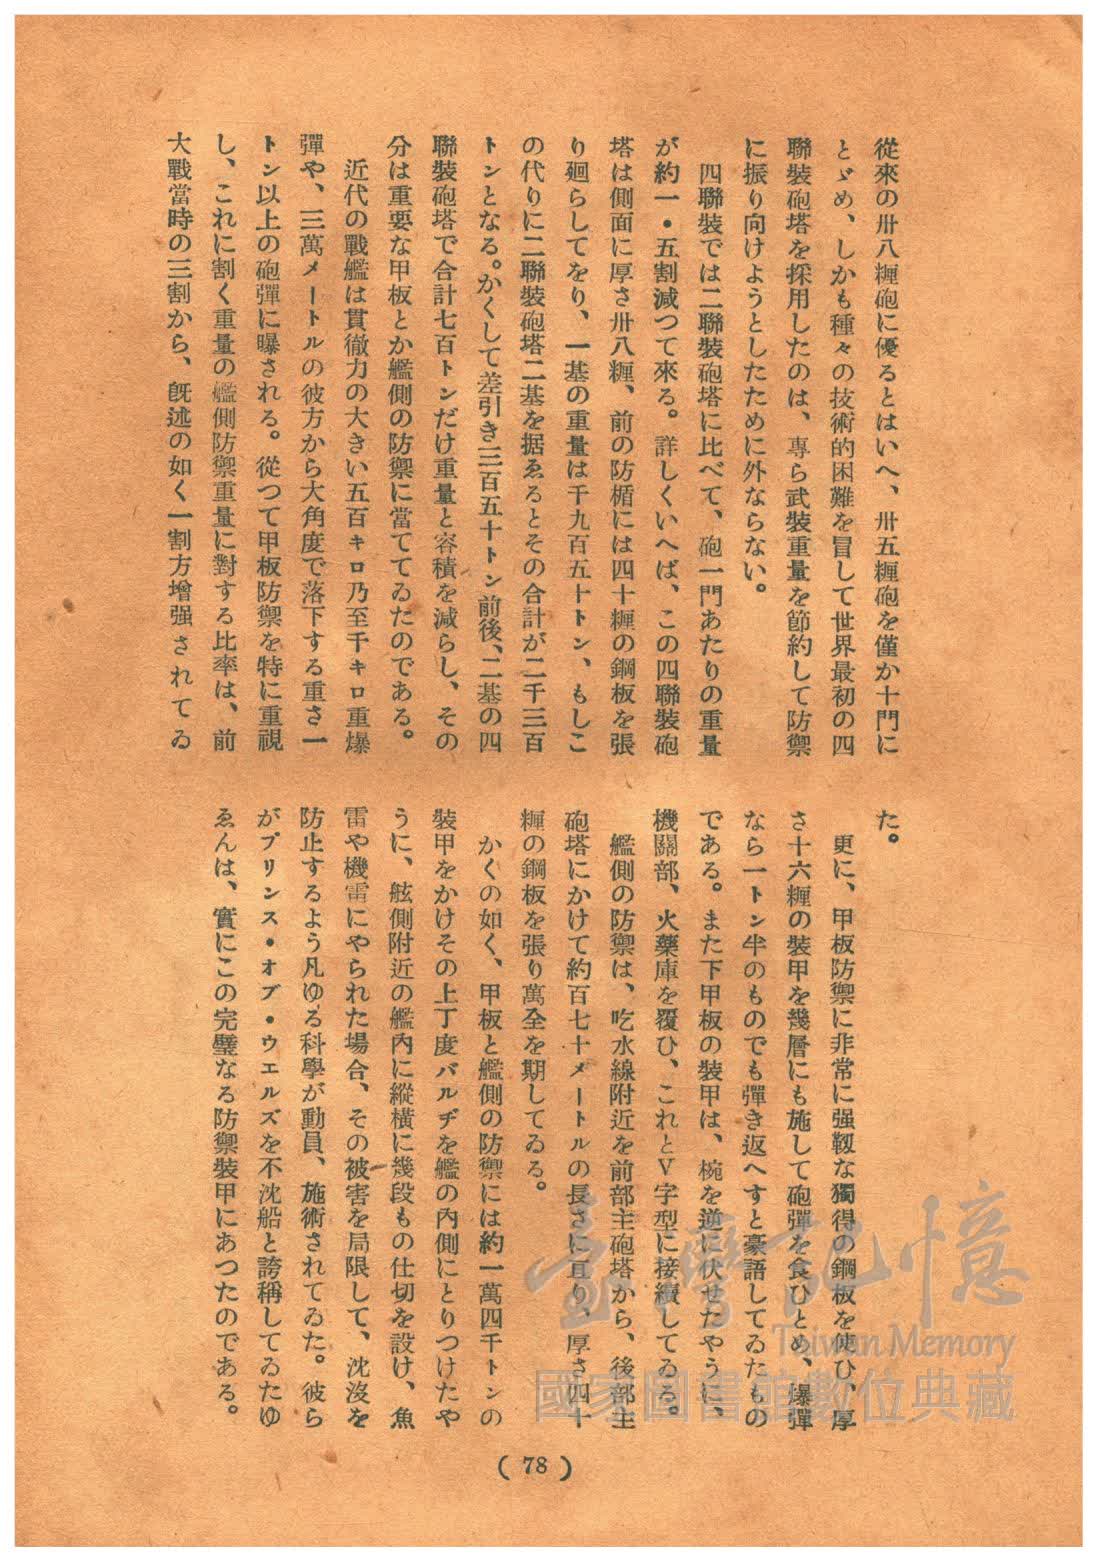 從來の卅八糎砲に優るとはいへ、卅五糎砲を僅か十門に
とゞめ、しかも種々の技術的困難を冒して世界最初の四
聯裝砲塔を採用したのは、專ら武裝重量を節約して防禦
に振り向けようとしたために外ならない。
四聯裝では二聯裝砲塔に比べて、砲一門あたりの重量
が約一・五割減つて來る。詳しくいへば、この四聯裝砲
塔は側面に厚さ卅八糎、前の防楯には四十糎の鋼板を張
り廻らしてをり、一基の重量は千九百五十トン、もしこ
の代りに二聯裝砲塔二基を据ゑるとその合計が二千三百
トンとなる。かくして差引き三百五十トン前後、二基の四
聯裝砲塔で合計七百トンだけ重量と容積を減らし、その
分は重要な甲板とか艦側の防禦に當ててゐたのである。
近代の戰艦は貫徹力の大きい五百キロ乃至千キロ重爆
彈や、三萬メートルの彼方から大角度で落下する重さ一
トン以上の砲彈に曝される。從つて甲板防禦を特に重視
し、これに割く重量の艦側防禦重量に對する比率は、前
大戰當時の三割から、旣述の如く一割方增强されてゐ
た。
更に、甲板防禦に非常に强靱な獨得の鋼板を使ひ、厚
さ十六糎の裝甲を幾層にも施して砲彈を食ひとめ、爆彈
なら一トン半のものでも彈き返へすと豪語してゐたもの
である。また下甲板の裝甲は、椀を逆に伏せたやうに、
機關部、火藥庫を覆ひ、これとV字型に接續してゐる。
艦側の防禦は、吃水線附近を前部主砲塔から、後部主
砲塔にかけて約百七十メートルの長さに亘り、厚さ四十
糎の鋼板を張り萬全を期してゐる。
かくの如く、甲板と艦側の防禦には約一萬四千トンの
裝甲をかけその上丁度バルヂを艦の內側にとりつけたや
うに、舷側附近の艦內に縱橫に幾段もの仕切を設け、魚
雷や機雷にやられた場合、その被害を局限して、沈沒を
防止するよう凡ゆる科學が動員、施術されてゐた。彼ら
がプリンス・オブ・ウエルズを不沈船と誇稱してゐたゆ
ゑんは、實にこの完璧なる防禦裝甲にあつたのである。
( 78 )
臺灣記憶
Taiwan Memory
國家圖書館數位典藏